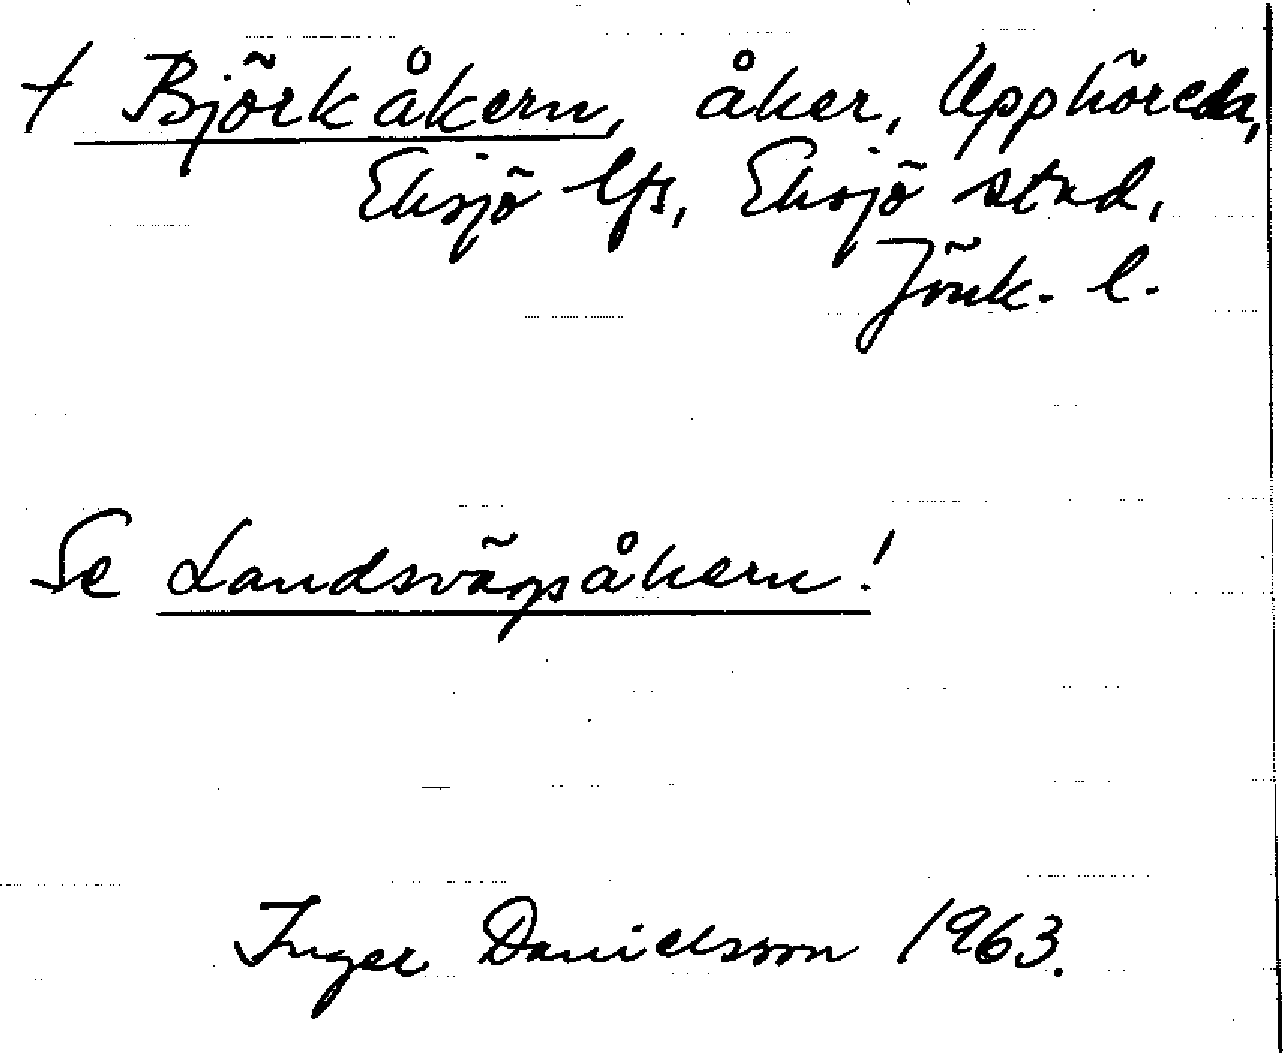 † Björkåkern, åker, Upphöreda,
Eksjö lfs, Eksjö stad,
Jönk. l.
Se Landsvägsåkern!
Inger Danielsson 1963.